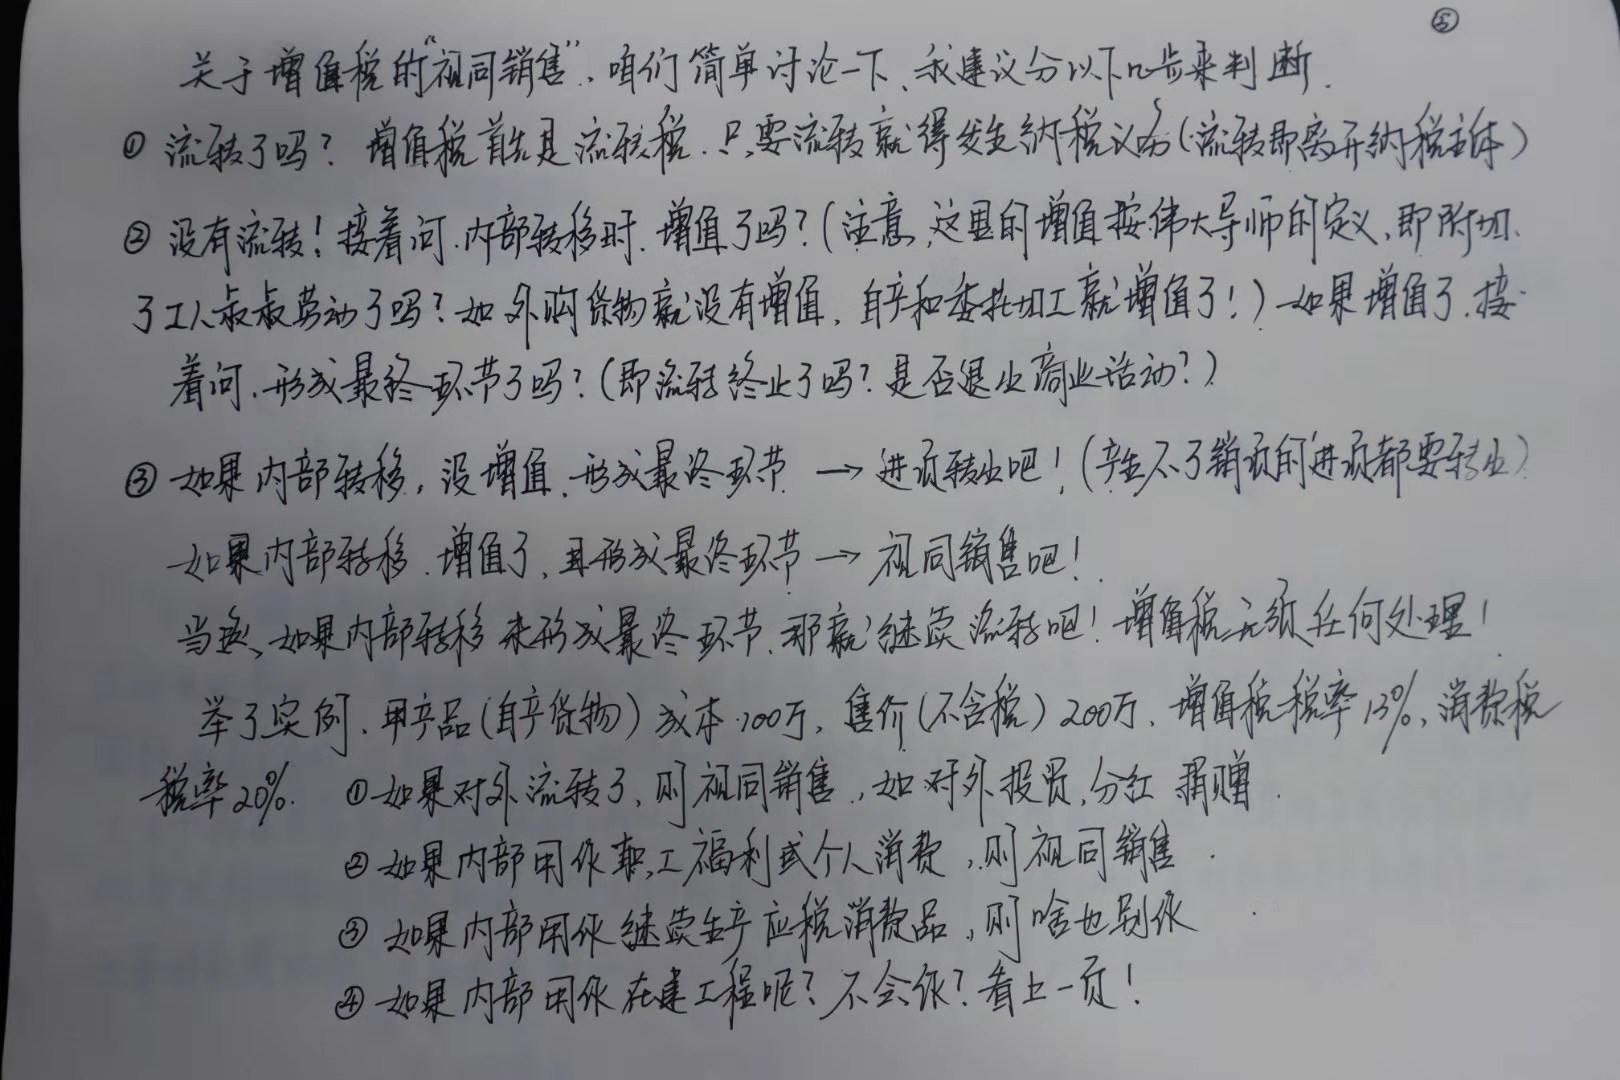 ⑤
关于增值税的"视同销售"、咱们简单讨论一下、我建议分以下几步来判断.
① 流转了吗？增值税首先是流转税.只要流转就得发生纳税义务(流转即离开纳税主体)
② 没有流转！接着问.内部转移时.增值了吗？(注意,这里的增值按伟大导师的定义,即附加
了工人叔叔劳动了吗？如外购货物就没有增值,自产和委托加工就增值了！)如果增值了.接
着问.形成最终环节了吗？(即流转终止了吗？是否退出商业活动？)
③ 如果内部转移,没增值.形成最终环节 → 进项转出吧！(产生不了销项的进项都要转出)
如果内部转移.增值了、且形成最终环节 → 视同销售吧！
当然、如果内部转移未形成最终环节.那就继续流转吧！增值税无须任何处理！
举个实例.甲产品(自产货物)成本100万,售价(不含税)200万.增值税税率13%,消费税
税率20%. ①如果对外流转了,则视同销售,如对外投资,分红 捐赠.
②如果内部用作职工福利或个人消费,则视同销售.
③如果内部用作继续生产应税消费品,则啥也别作
④如果内部用作在建工程呢？不会作？看上一页！